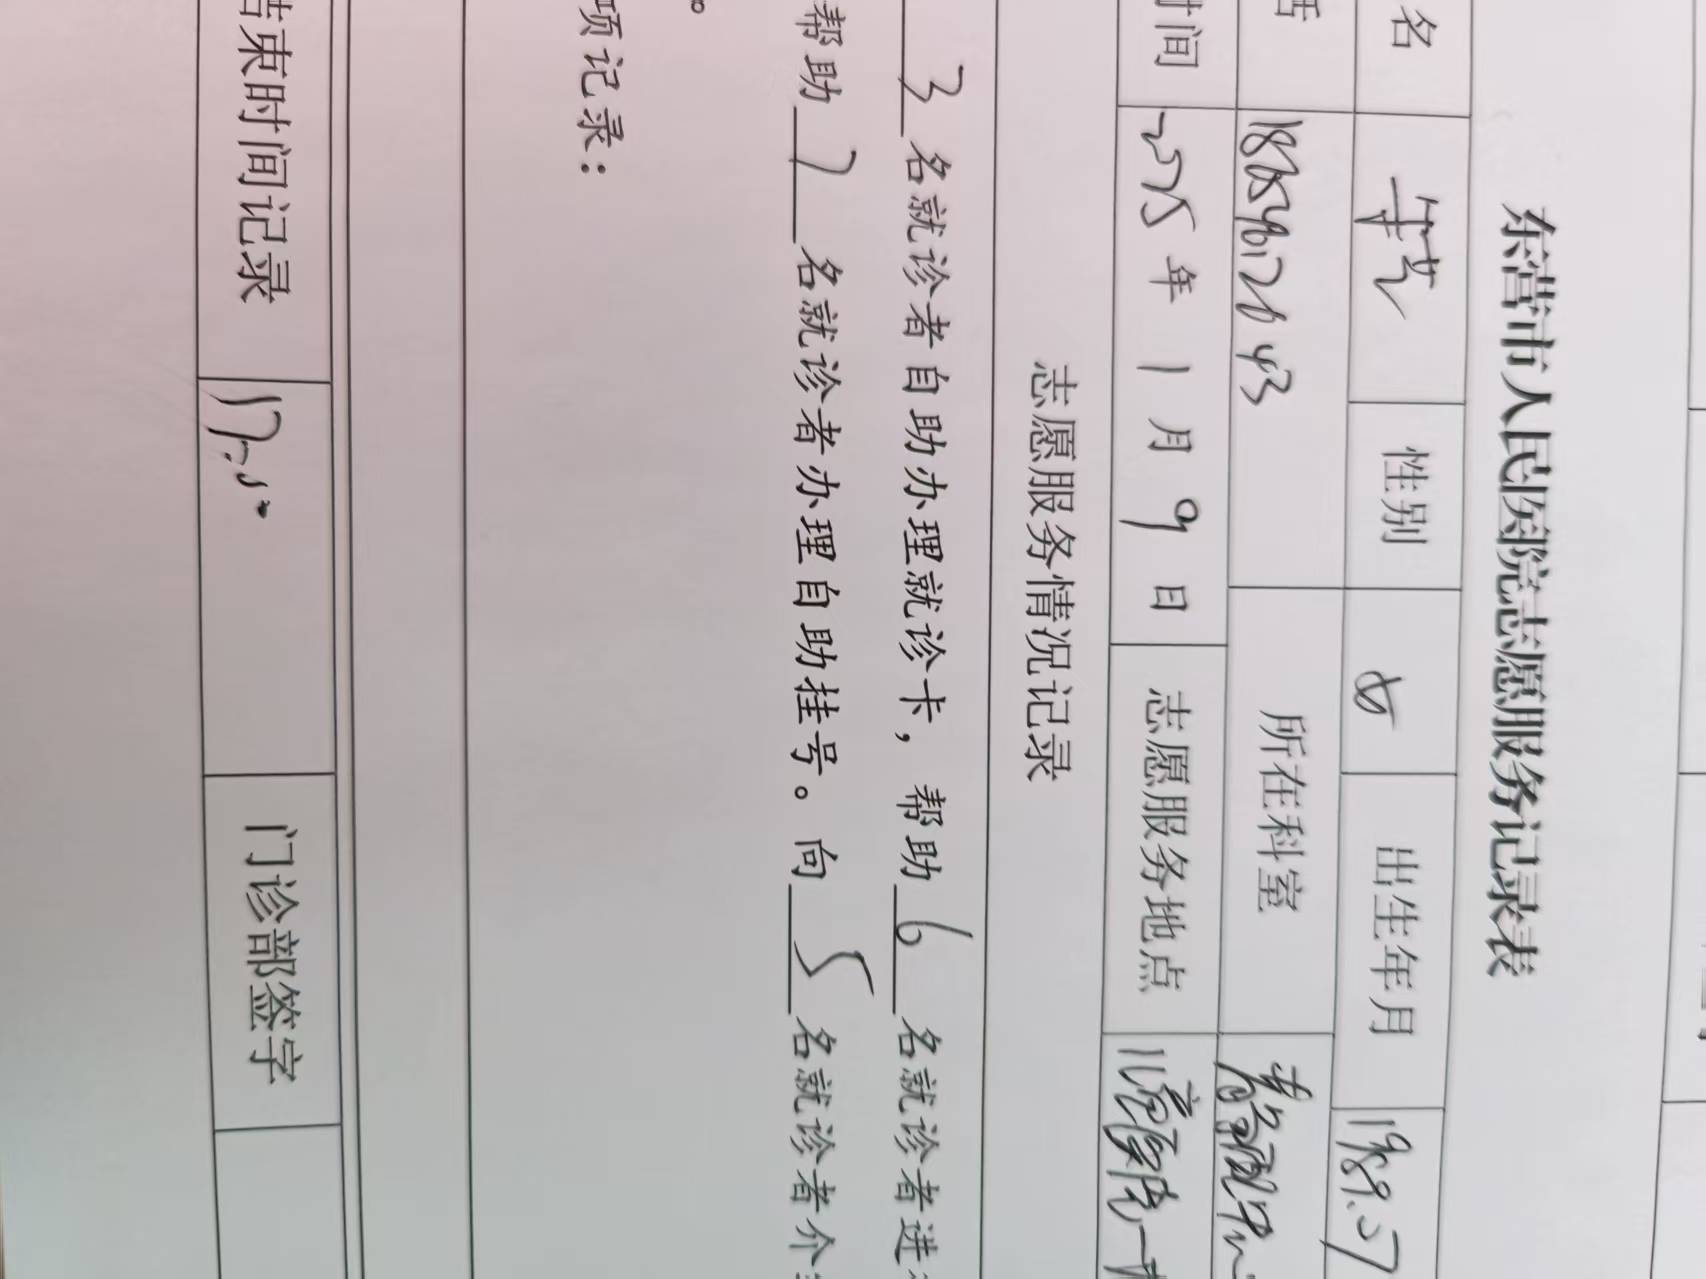 东营市人民医院志愿服务记录表
名 性别 女 出生年月 1989.07
话 所在科室
时间 2025年1月9日 志愿服务地点 儿童医院一
志愿服务情况记录
3名就诊者自助办理就诊卡，帮助6名就诊者进
帮助7名就诊者办理自助挂号。向5名就诊者介
。
项记录：
结束时间记录 门诊部签字